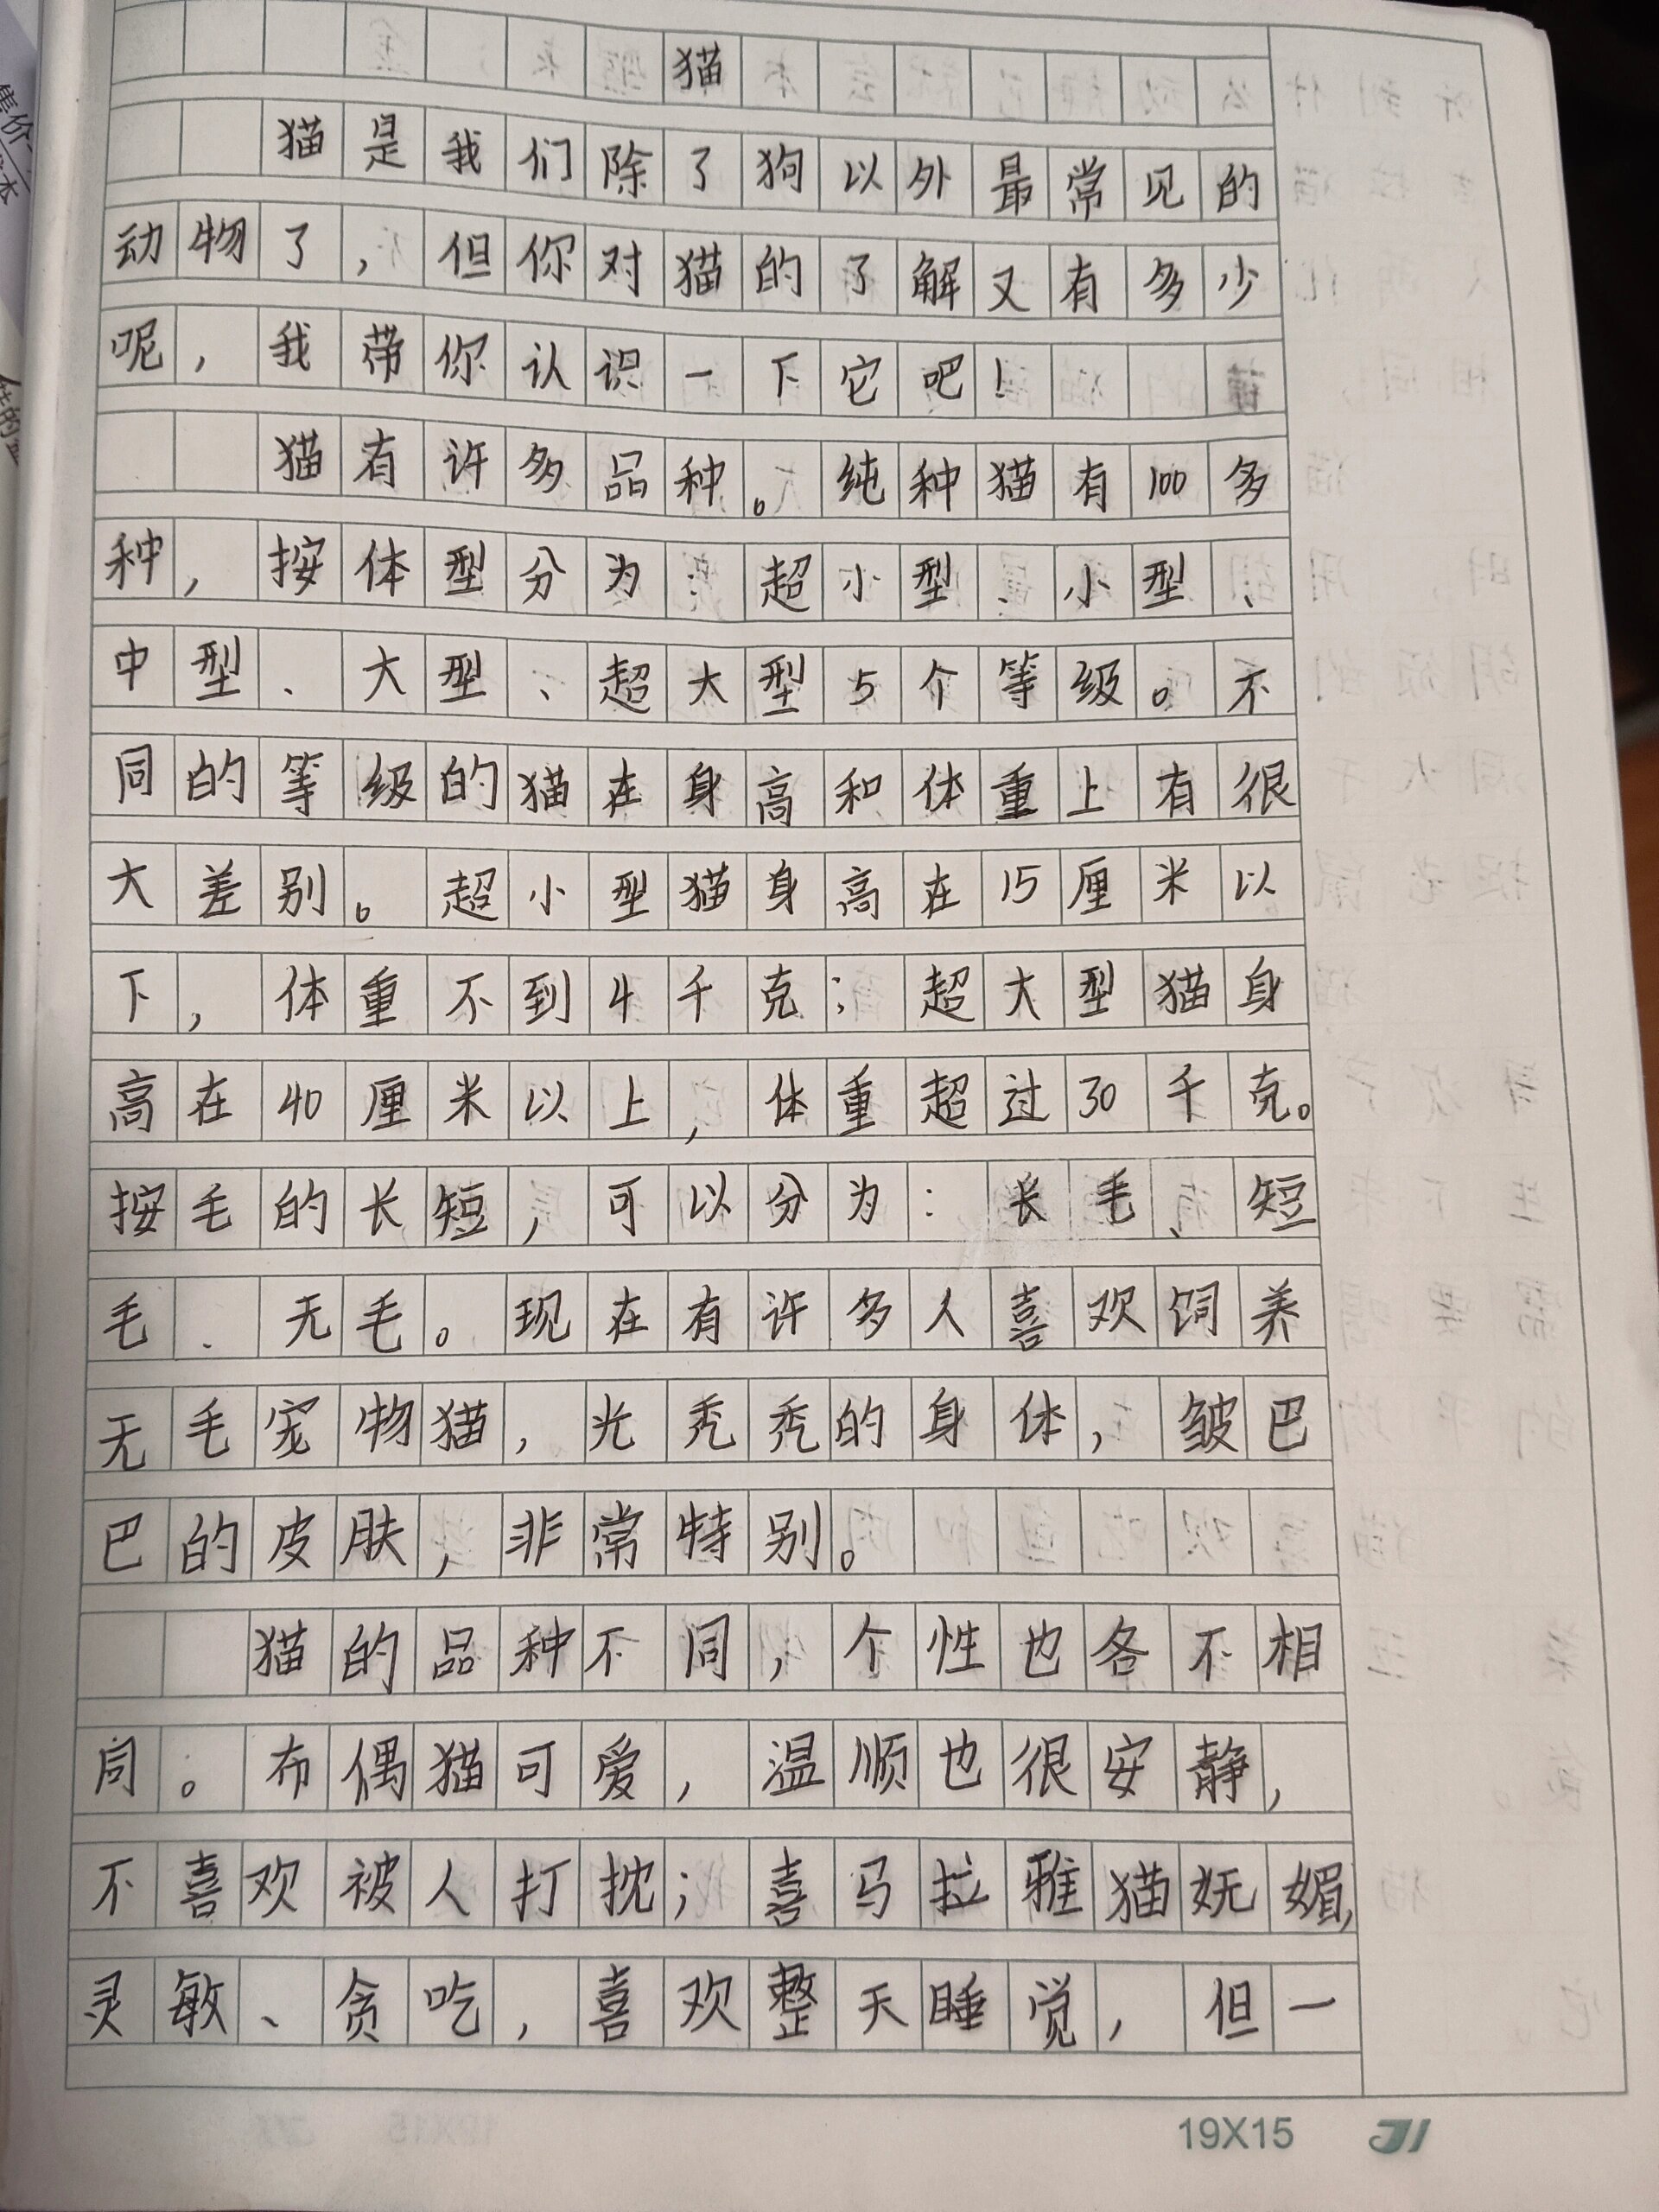 猫
猫是我们除了狗以外最常见的
动物了，但你对猫的了解又有多少
呢，我带你认识一下它吧！
猫有许多品种。纯种猫有100多
种，按体型分为：超小型、小型、
中型、大型、超大型5个等级。不
同的等级的猫在身高和体重上有很
大差别。超小型猫身高在15厘米以
下，体重不到4千克；超大型猫身
高在40厘米以上，体重超过30千克。
按毛的长短，可以分为：长毛、短
毛、无毛。现在有许多人喜欢饲养
无毛宠物猫，光秃秃的身体，皱巴
巴的皮肤，非常特别。
猫的品种不同，个性也各不相
同。布偶猫可爱，温顺也很安静，
不喜欢被人打扰；喜马拉雅猫妩媚，
灵敏、贪吃，喜欢整天睡觉，但一
19X15